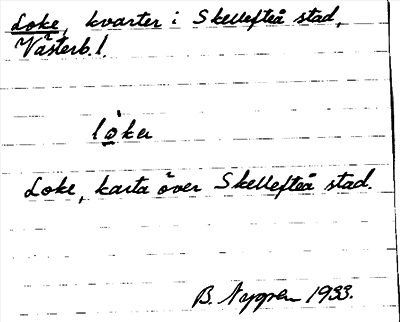 Loke, kvarter i Skellefteå stad,
Västerb. l.
lo̠ker
Loke, karta över Skellefteå stad.
B. Nygren 1933.